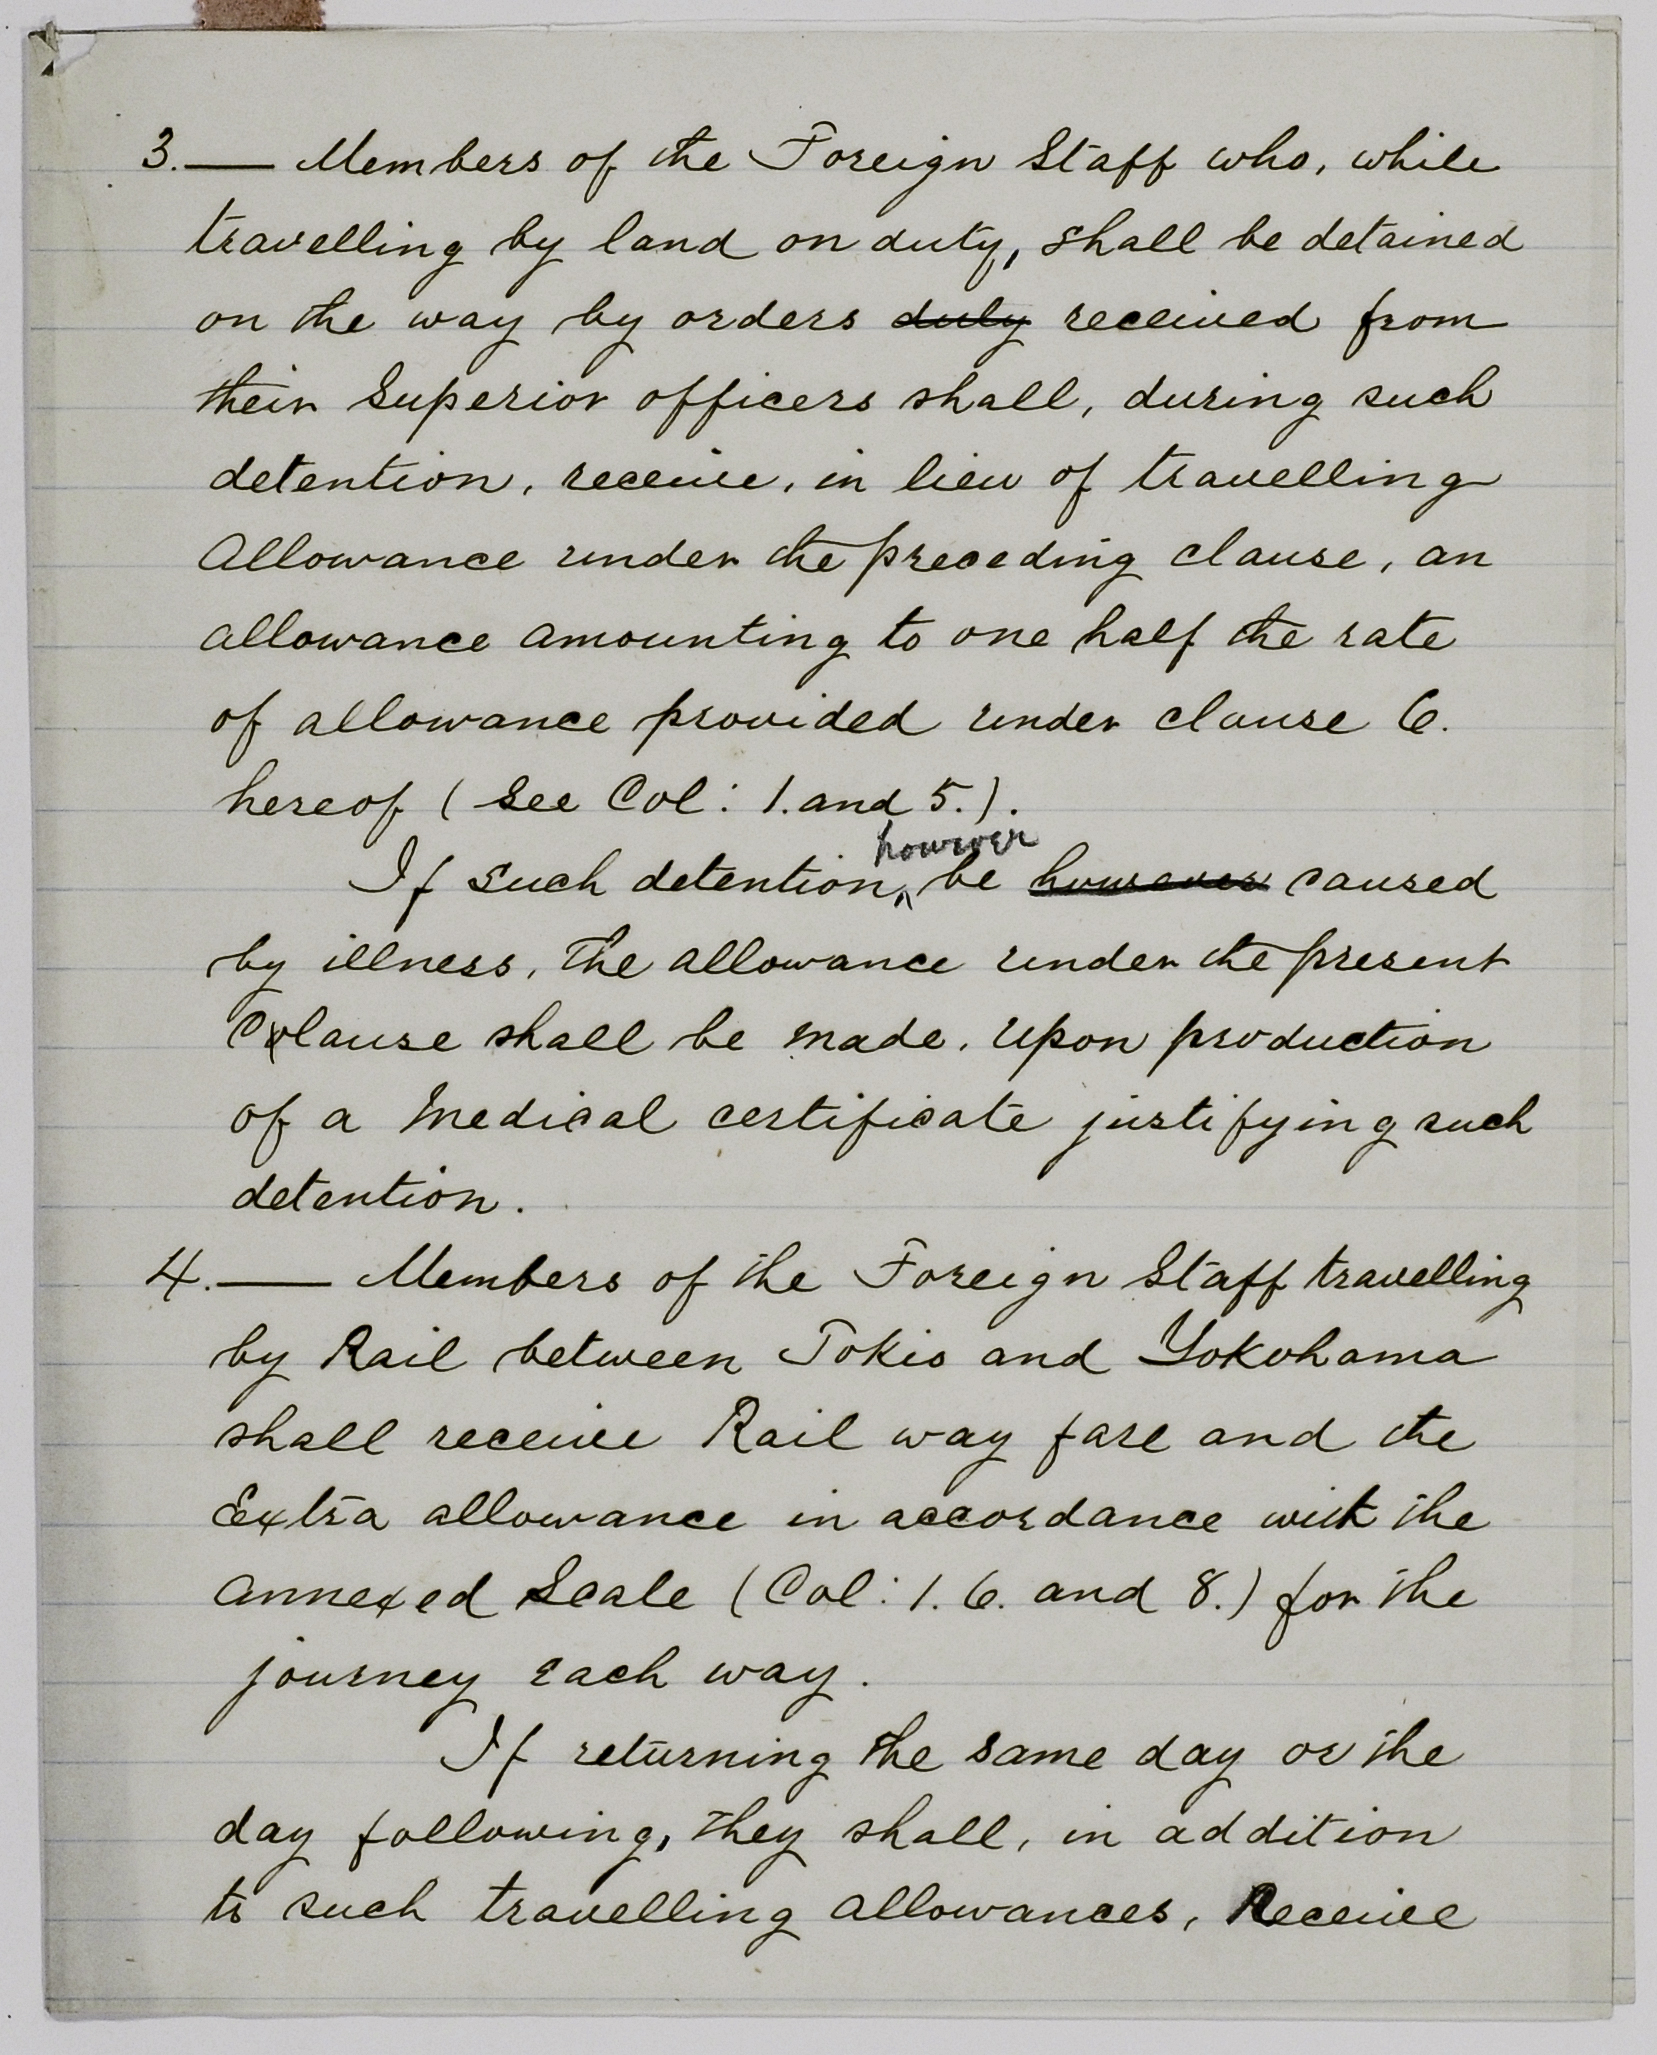 3. — Members of the Foreign Staff who, while
travelling by land on duty, shall be detained
on the way by orders duly received from
their Superior officers shall, during such
detention, receive, in lieu of travelling
Allowance under the preceding clause, an
allowance amounting to one half the rate
of allowance provided under clause 6.
hereof ( See Col: 1. and 5.).
however
If such detention, be however caused
by illness, the allowance under the present
Clause shall be made, upon production
of a Medical certificate justifying such
detention.
4. — Members of the Foreign Staff travelling
by Rail between Tokio and Yokohama
shall receive Rail way fare and the
Extra allowance in accordance with the
annexed Scale (Col: 1. 6. and 8.) for the
journey each way.
If returning the same day or the
day following, they shall, in addition
to such travelling allowances, Receive